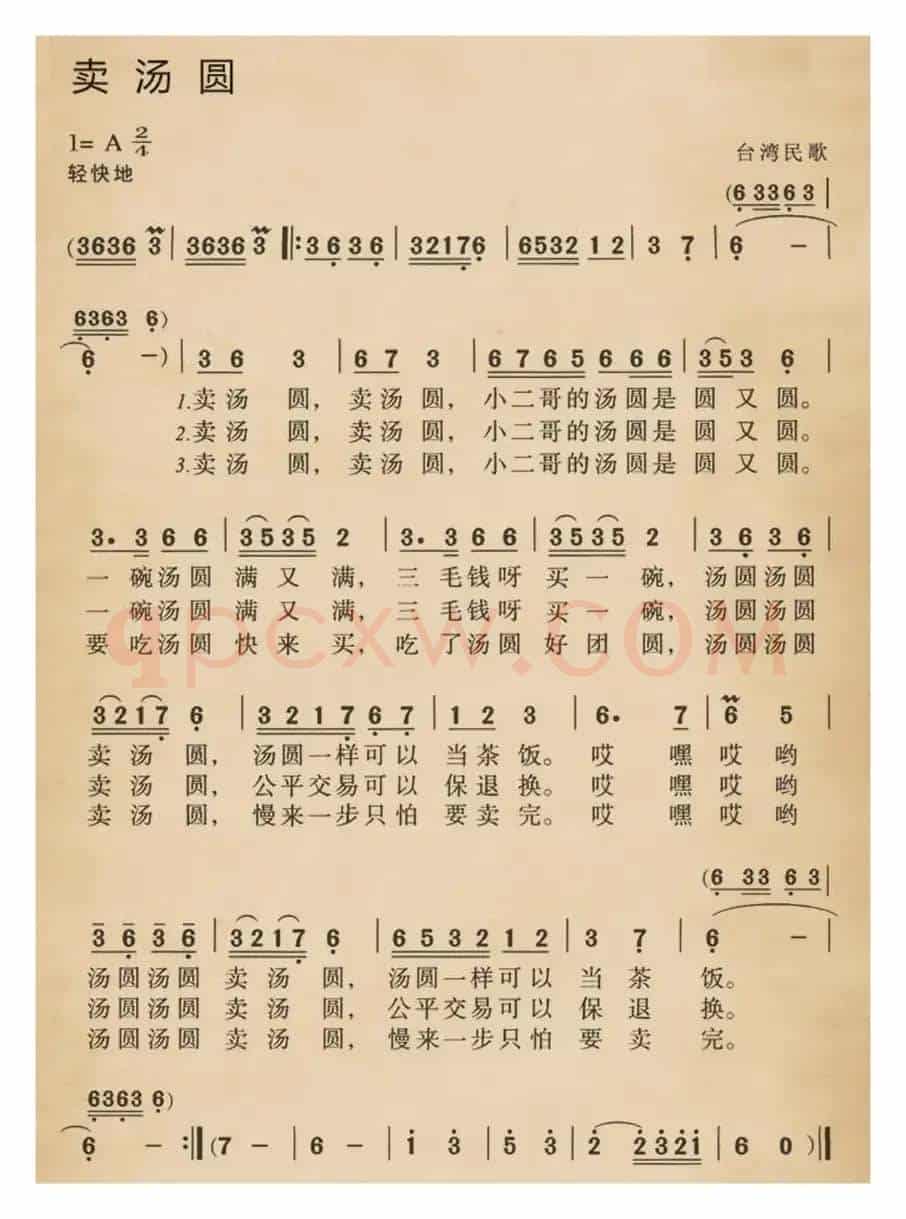 卖汤圆
1= A 2/4
轻快地
台湾民歌
(6 33 6 3 |
(3636 3 | 3636 3 ‖: 3 6 3 6 | 32176 | 6532 1 2 | 3 7 | 6 - |
6363 6)
6 -) | 3 6 3 | 6 7 3 | 6 7 6 5 6 6 6 | 353 6 |
1.卖汤 圆, 卖汤 圆, 小二哥的汤圆是 圆又圆。
2.卖汤 圆, 卖汤 圆, 小二哥的汤圆是 圆又圆。
3.卖汤 圆, 卖汤 圆, 小二哥的汤圆是 圆又圆。
3. 3 6 6 | 3535 2 | 3. 3 6 6 | 3535 2 | 3 6 3 6 |
一 碗汤圆 满又满, 三 毛钱呀 买一碗, 汤圆汤圆
一 碗汤圆 满又满, 三 毛钱呀 买一碗, 汤圆汤圆
要 吃汤圆 快来买, 吃 了汤圆 好团圆, 汤圆汤圆
qpcxw.COM
3217 6 | 3 2 1 7 6 7 | 1 2 3 | 6. 7 | 6 5 |
卖汤圆, 汤圆一样可以 当茶饭。 哎 嘿哎哟
卖汤圆, 公平交易可以 保退换。 哎 嘿哎哟
卖汤圆, 慢来一步只怕 要卖完。 哎 嘿哎哟
(6 33 6 3 |
3 6 3 6 | 3217 6 | 6 5 3 2 1 2 | 3 7 | 6 - |
汤圆汤圆 卖汤圆, 汤圆一样可以 当茶 饭。
汤圆汤圆 卖汤圆, 公平交易可以 保退 换。
汤圆汤圆 卖汤圆, 慢来一步只怕 要卖 完。
6363 6)
6 - :‖ (7 - | 6 - | 1 3 | 5 3 | 2 2321 | 6 0 )‖